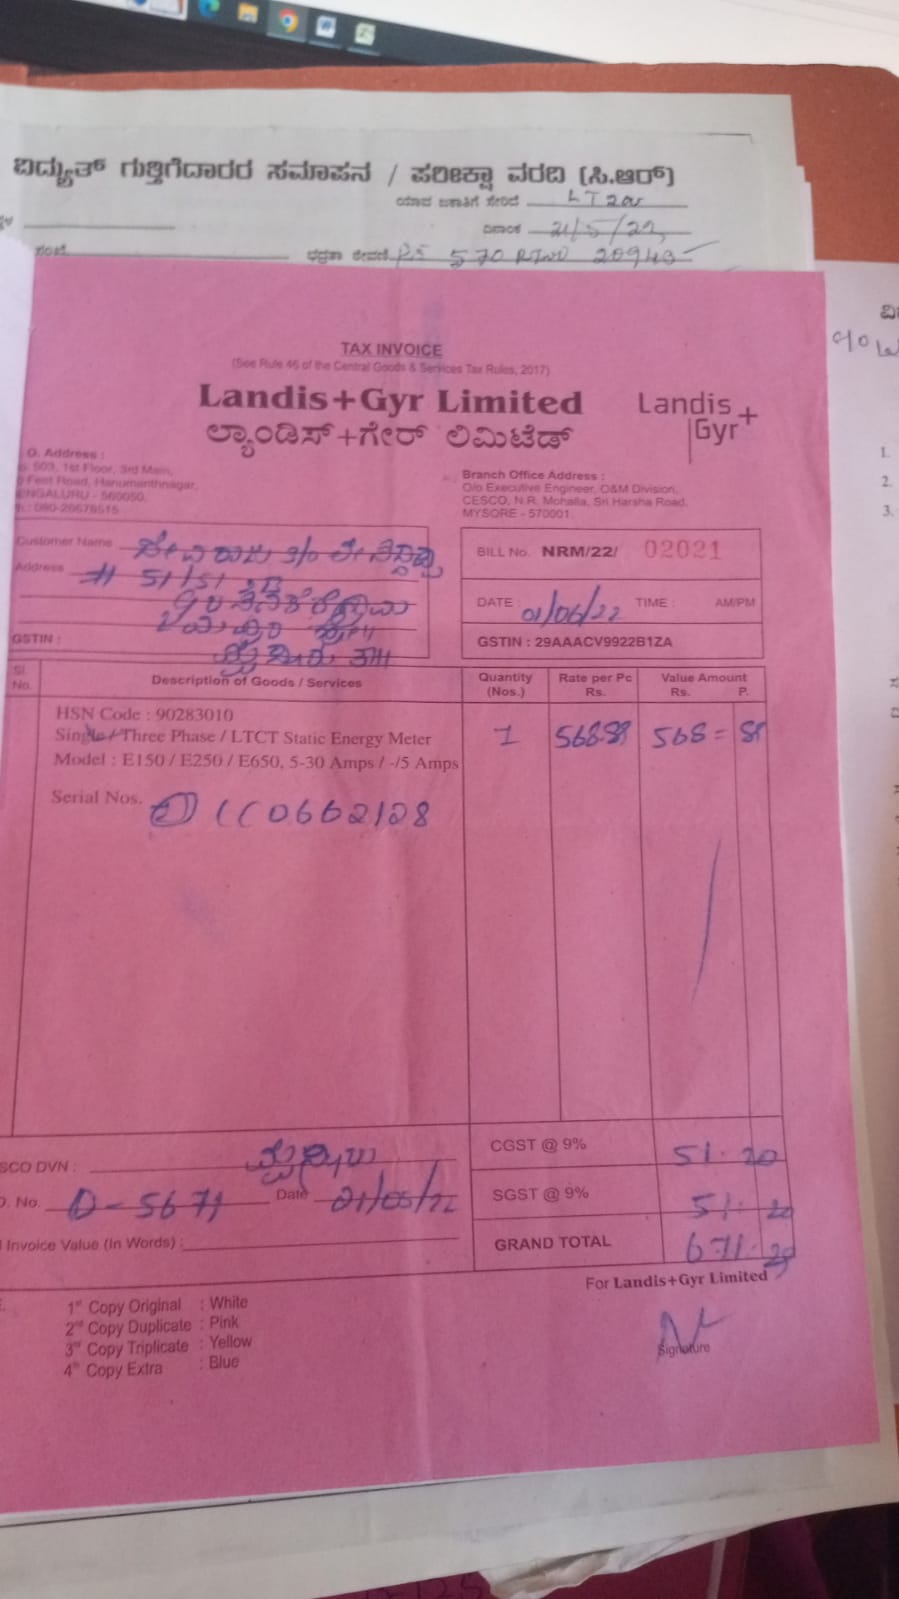 ವಿದ್ಯುತ್ ಗುತ್ತಿಗೆದಾರರ ಸಮಾಪನ / ಪರೀಕ್ಷಾ ವರದಿ (ಸಿ.ಆರ್)
ಯಾವ ಜಕಾತಿಗೆ ಸೇರಿದೆ LT2
ದಿನಾಂಕ 21/5/22
ಭದ್ರತಾ ಠೇವಣಿ RS 570 RTND 20943
TAX INVOICE
(See Rule 46 of the Central Goods & Services Tax Rules, 2017)
Landis+Gyr Limited
ಲ್ಯಾಂಡಿಸ್+ಗೇರ್ ಲಿಮಿಟೆಡ್
Landis+
Gyr
O. Address :
503, 1st Floor, 3rd Main,
Feet Road, Hanumanthnagar,
ENGALURU - 560050.
080-26676515
Branch Office Address :
O/o Executive Engineer, O&M Division,
CESCO, N.R. Mohalla, Sri Harsha Road,
MYSORE - 570001.
Customer Name
Address # 51/51
GSTIN :
BILL No. NRM/22/ 02021
DATE : 01/06/22 TIME : AM/PM
GSTIN : 29AAACV9922B1ZA
Sl. No. Description of Goods / Services Quantity (Nos.) Rate per Pc Rs. Value Amount Rs. P.
HSN Code : 90283010
Single / Three Phase / LTCT Static Energy Meter 1 568.89 568 = 89
Model : E150 / E250 / E650, 5-30 Amps / -/5 Amps
Serial Nos. CC0662128
CGST @ 9% 51.20
SCO DVN :
SGST @ 9% 51.20
O. No. D-5671 Date 21/05/22
GRAND TOTAL 671.29
Invoice Value (In Words) :
For Landis+Gyr Limited
1st Copy Original : White
2nd Copy Duplicate : Pink
3rd Copy Triplicate : Yellow
4th Copy Extra : Blue
Signature
1.
2.
3.